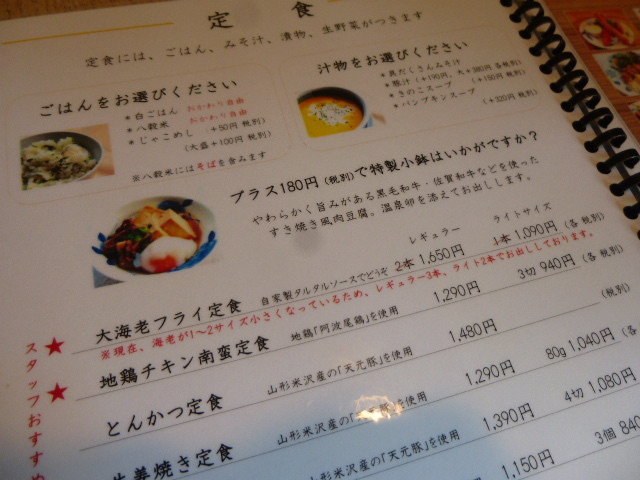 定食
定食には、ごはん、みそ汁、漬物、生野菜がつきます
ごはんをお選びください
＊白ごはん おかわり自由
＊八穀米 おかわり自由
＊じゃこめし （+50円 税別）
（大盛+100円 税別）
※八穀米にはそばを含みます
汁物をお選びください
＊具だくさんみそ汁
＊豚汁（+190円、大+380円 各税別）
＊きのこスープ （+150円 税別）
＊パンプキンスープ
（+320円 税別）
プラス180円（税別）で特製小鉢はいかがですか？
やわらかく旨みがある黒毛和牛・佐賀和牛などを使った
すき焼き風肉豆腐。温泉卵を添えてお出しします。
レギュラー ライトサイズ
大海老フライ定食 自家製タルタルソースでどうぞ 2本 1,650円 1本 1,090円（各 税別）
※現在、海老が1〜2サイズ小さくなっているため、レギュラー3本、ライト2本でお出ししております。
スタッフおすすめ
★地鶏チキン南蛮定食 地鶏「阿波尾鶏」を使用 1,290円 3切 940円（各 税別）
★とんかつ定食 山形米沢産の「天元豚」を使用 1,480円 （税別）
生姜焼き定食 山形米沢産の「天元豚」を使用 1,290円 80g 1,040円（各
山形米沢産の「天元豚」を使用 1,390円 4切 1,080円
1,150円 3個 840